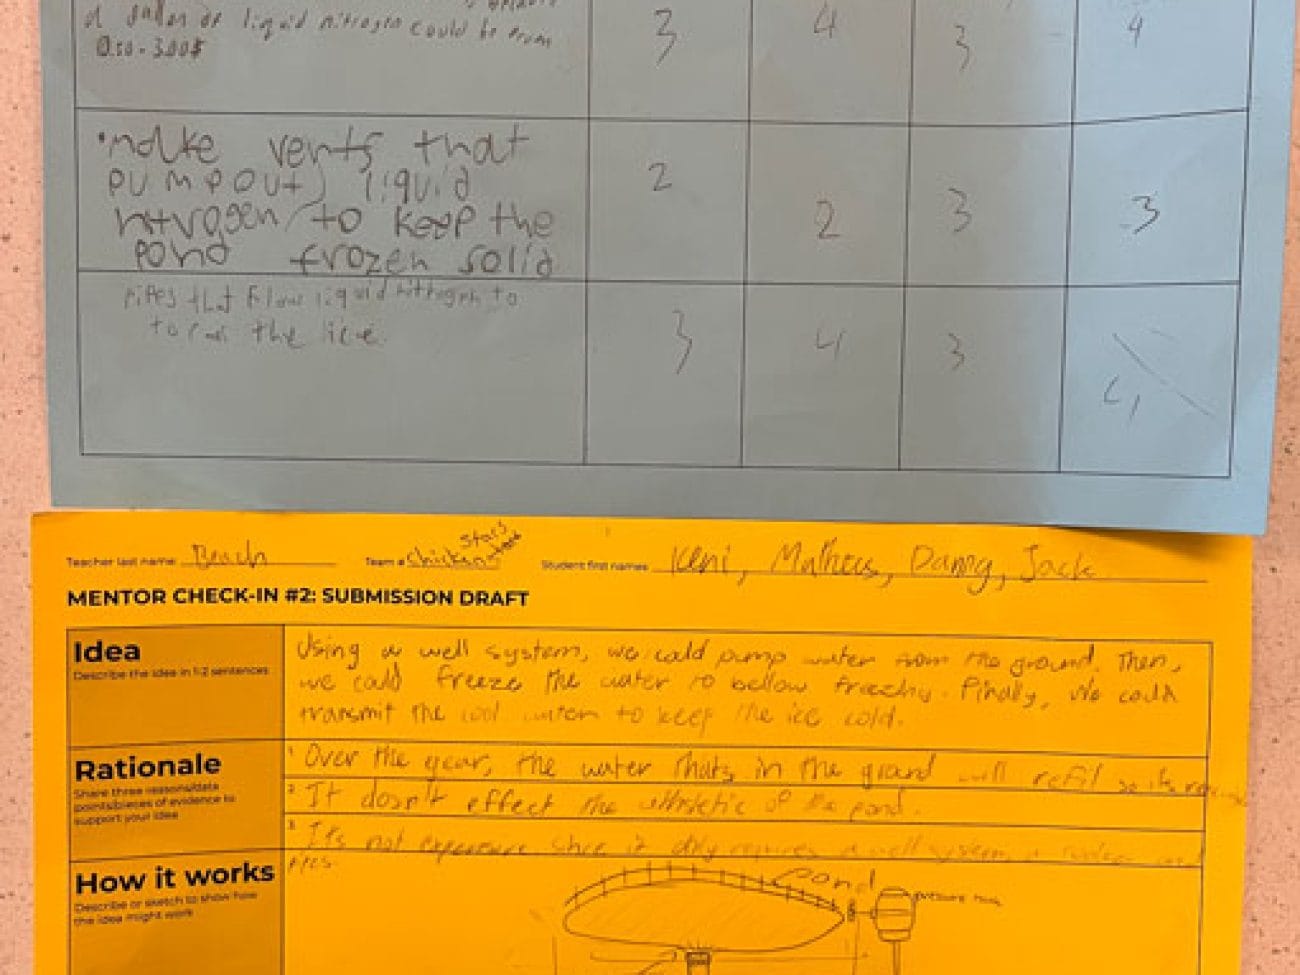 a gallon of liquid nitrogen could be from
0.50 - 3.00$
3 4 3 4
• make vents that
pump out liquid
nitrogen to keep the
pond frozen solid
2 2 3 3
pipes that flow liquid nitrogen to
the lice.
3 4 3 4
Teacher last name: Beach Team # Chicken Stars Student first names Keni, Matheus, Danng, Jack
MENTOR CHECK-IN #2: SUBMISSION DRAFT
Idea
Describe the idea in 1-2 sentences
Using a well system, we cald pump water from the ground. Then,
we could freeze the water to bellow freezing. Finally, we could
transmit the cool water to keep the ice cold.
Rationale
Share three reasons/data
points/pieces of evidence to
support your idea
1 Over the year, the water thats in the ground will refil so its
2 It dosn't effect the of the pond.
3 It's not expensive since it only requires a well system,
pipes.
How it works
Describe or sketch to show how
the idea might work
pond
pressure tank